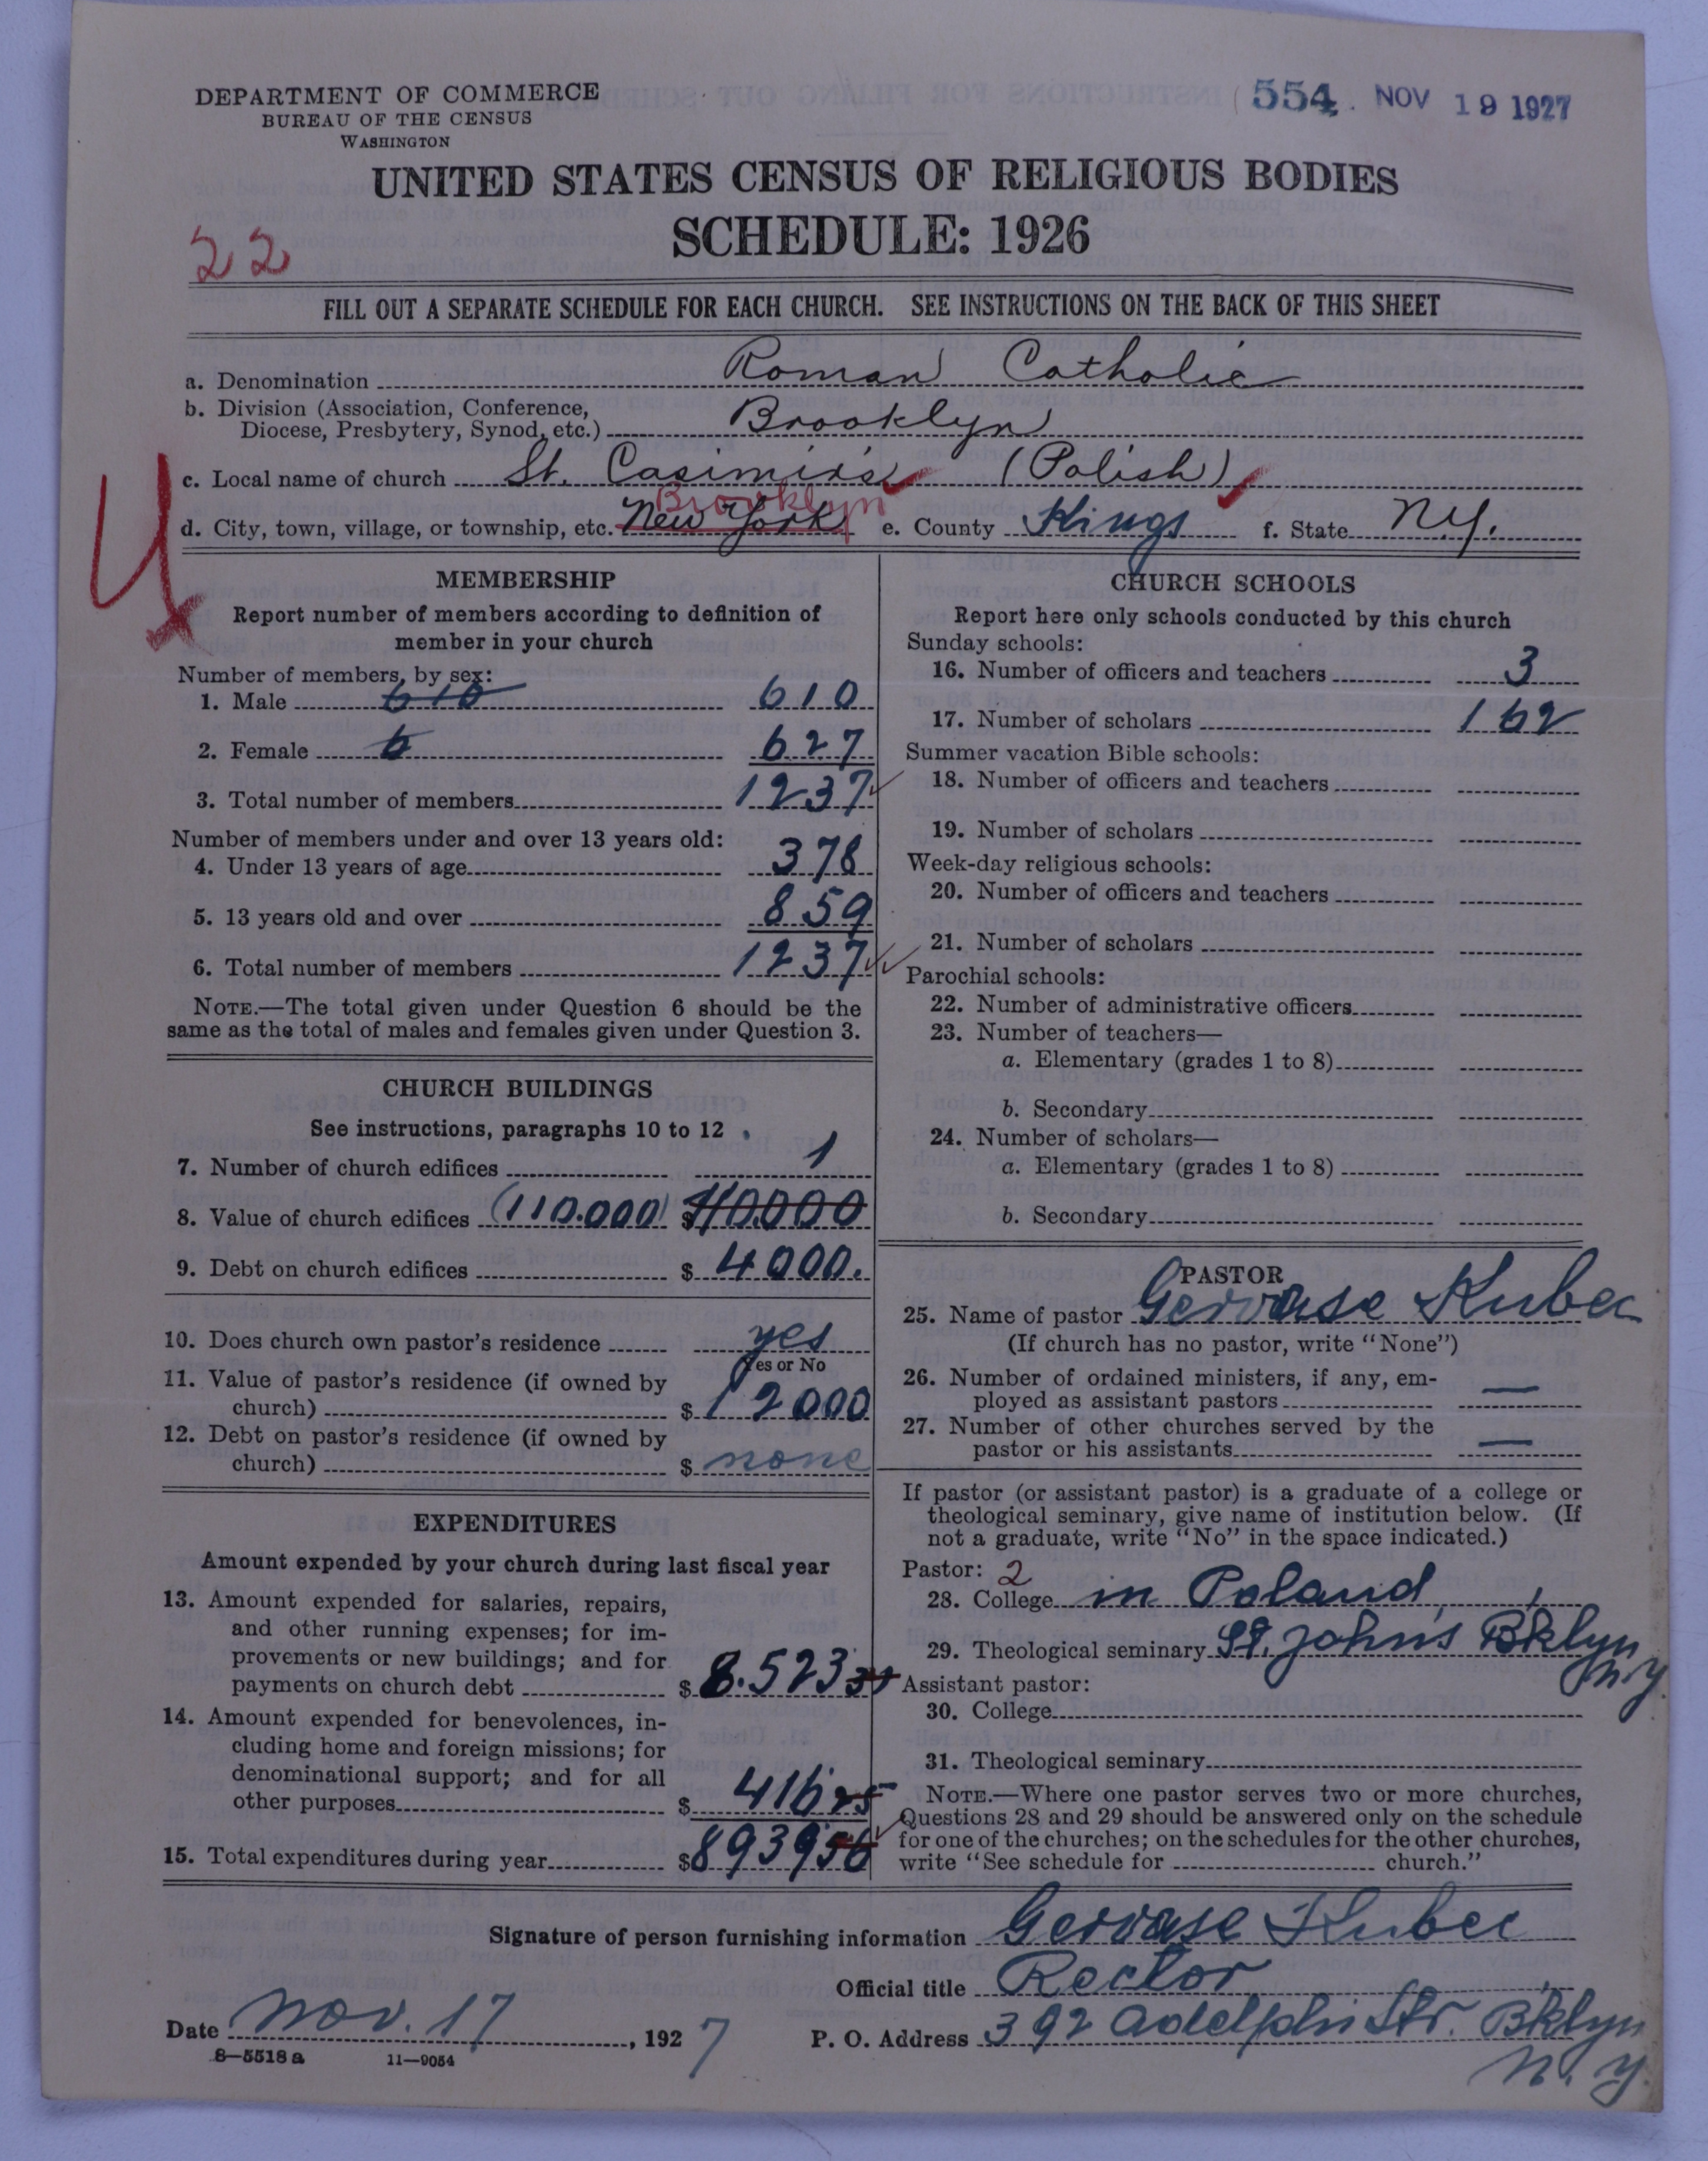 DEPARTMENT OF COMMERCE
BUREAU OF THE CENSUS
WASHINGTON
554. NOV 19 1927
UNITED STATES CENSUS OF RELIGIOUS BODIES
SCHEDULE: 1926
22
FILL OUT A SEPARATE SCHEDULE FOR EACH CHURCH. SEE INSTRUCTIONS ON THE BACK OF THIS SHEET
a. Denomination Roman Catholic
b. Division (Association, Conference,
Diocese, Presbytery, Synod, etc.) Brooklyn
c. Local name of church St. Casimir's (Polish)
Brooklyn
d. City, town, village, or township, etc. New York e. County Kings f. State N.Y.
MEMBERSHIP
Report number of members according to definition of
member in your church
Number of members, by sex:
1. Male 610 610
2. Female 6 627
3. Total number of members 1237
Number of members under and over 13 years old:
4. Under 13 years of age 378
5. 13 years old and over 859
6. Total number of members 1237
NOTE.—The total given under Question 6 should be the
same as the total of males and females given under Question 3.
CHURCH BUILDINGS
See instructions, paragraphs 10 to 12
7. Number of church edifices 1
8. Value of church edifices (110.000) $110000
9. Debt on church edifices $ 4000.
10. Does church own pastor's residence yes
Yes or No
11. Value of pastor's residence (if owned by
church) $ 12000
12. Debt on pastor's residence (if owned by
church) $ none
EXPENDITURES
Amount expended by your church during last fiscal year
13. Amount expended for salaries, repairs,
and other running expenses; for im-
provements or new buildings; and for
payments on church debt $ 8.523 31
14. Amount expended for benevolences, in-
cluding home and foreign missions; for
denominational support; and for all
other purposes $ 416 25
15. Total expenditures during year $8939 56
CHURCH SCHOOLS
Report here only schools conducted by this church
Sunday schools:
16. Number of officers and teachers 3
17. Number of scholars 162
Summer vacation Bible schools:
18. Number of officers and teachers
19. Number of scholars
Week-day religious schools:
20. Number of officers and teachers
21. Number of scholars
Parochial schools:
22. Number of administrative officers
23. Number of teachers—
a. Elementary (grades 1 to 8)
b. Secondary
24. Number of scholars—
a. Elementary (grades 1 to 8)
b. Secondary
PASTOR
25. Name of pastor Gervase Kubec
(If church has no pastor, write "None")
26. Number of ordained ministers, if any, em-
ployed as assistant pastors —
27. Number of other churches served by the
pastor or his assistants —
If pastor (or assistant pastor) is a graduate of a college or
theological seminary, give name of institution below. (If
not a graduate, write "No" in the space indicated.)
Pastor: 2
28. College in Poland,
29. Theological seminary St. John's Bklyn
N.Y.
Assistant pastor:
30. College
31. Theological seminary
NOTE.—Where one pastor serves two or more churches,
Questions 28 and 29 should be answered only on the schedule
for one of the churches; on the schedules for the other churches,
write "See schedule for church."
Signature of person furnishing information Gervase Kubec
Official title Rector
Date Nov. 17, 1927 P. O. Address 392 Adelphi Str. Bklyn
N.Y.
8—5518 a 11—9054